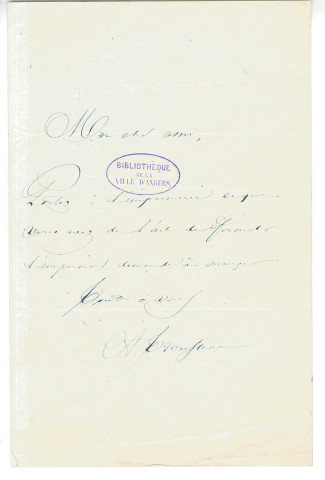 Mon cher ami,
BIBLIOTHÈQUE
DE LA
VILLE D'ANGERS
Portez à l'imprimerie ce que
vous avez de l'art de
l'imprimeur demande à manger
Tout à vous
A